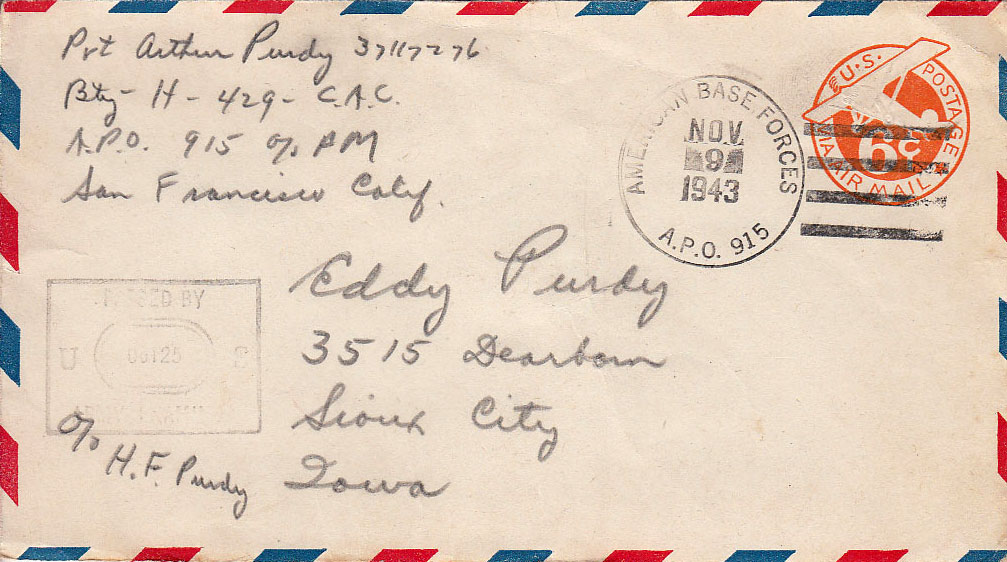 Pvt Arthur Purdy 37117276
Bty - H - 429 - C.A.C.
A.P.O. 915 c/o PM
San Francisco Calif.
AMERICAN BASE FORCES
NOV.
9
1943
A.P.O. 915
U.S. POSTAGE
6c
VIA AIR MAIL
PASSED BY
U S
Eddy Purdy
3515 Dearborn
Sioux City
Iowa
c/o
H.F. Purdy